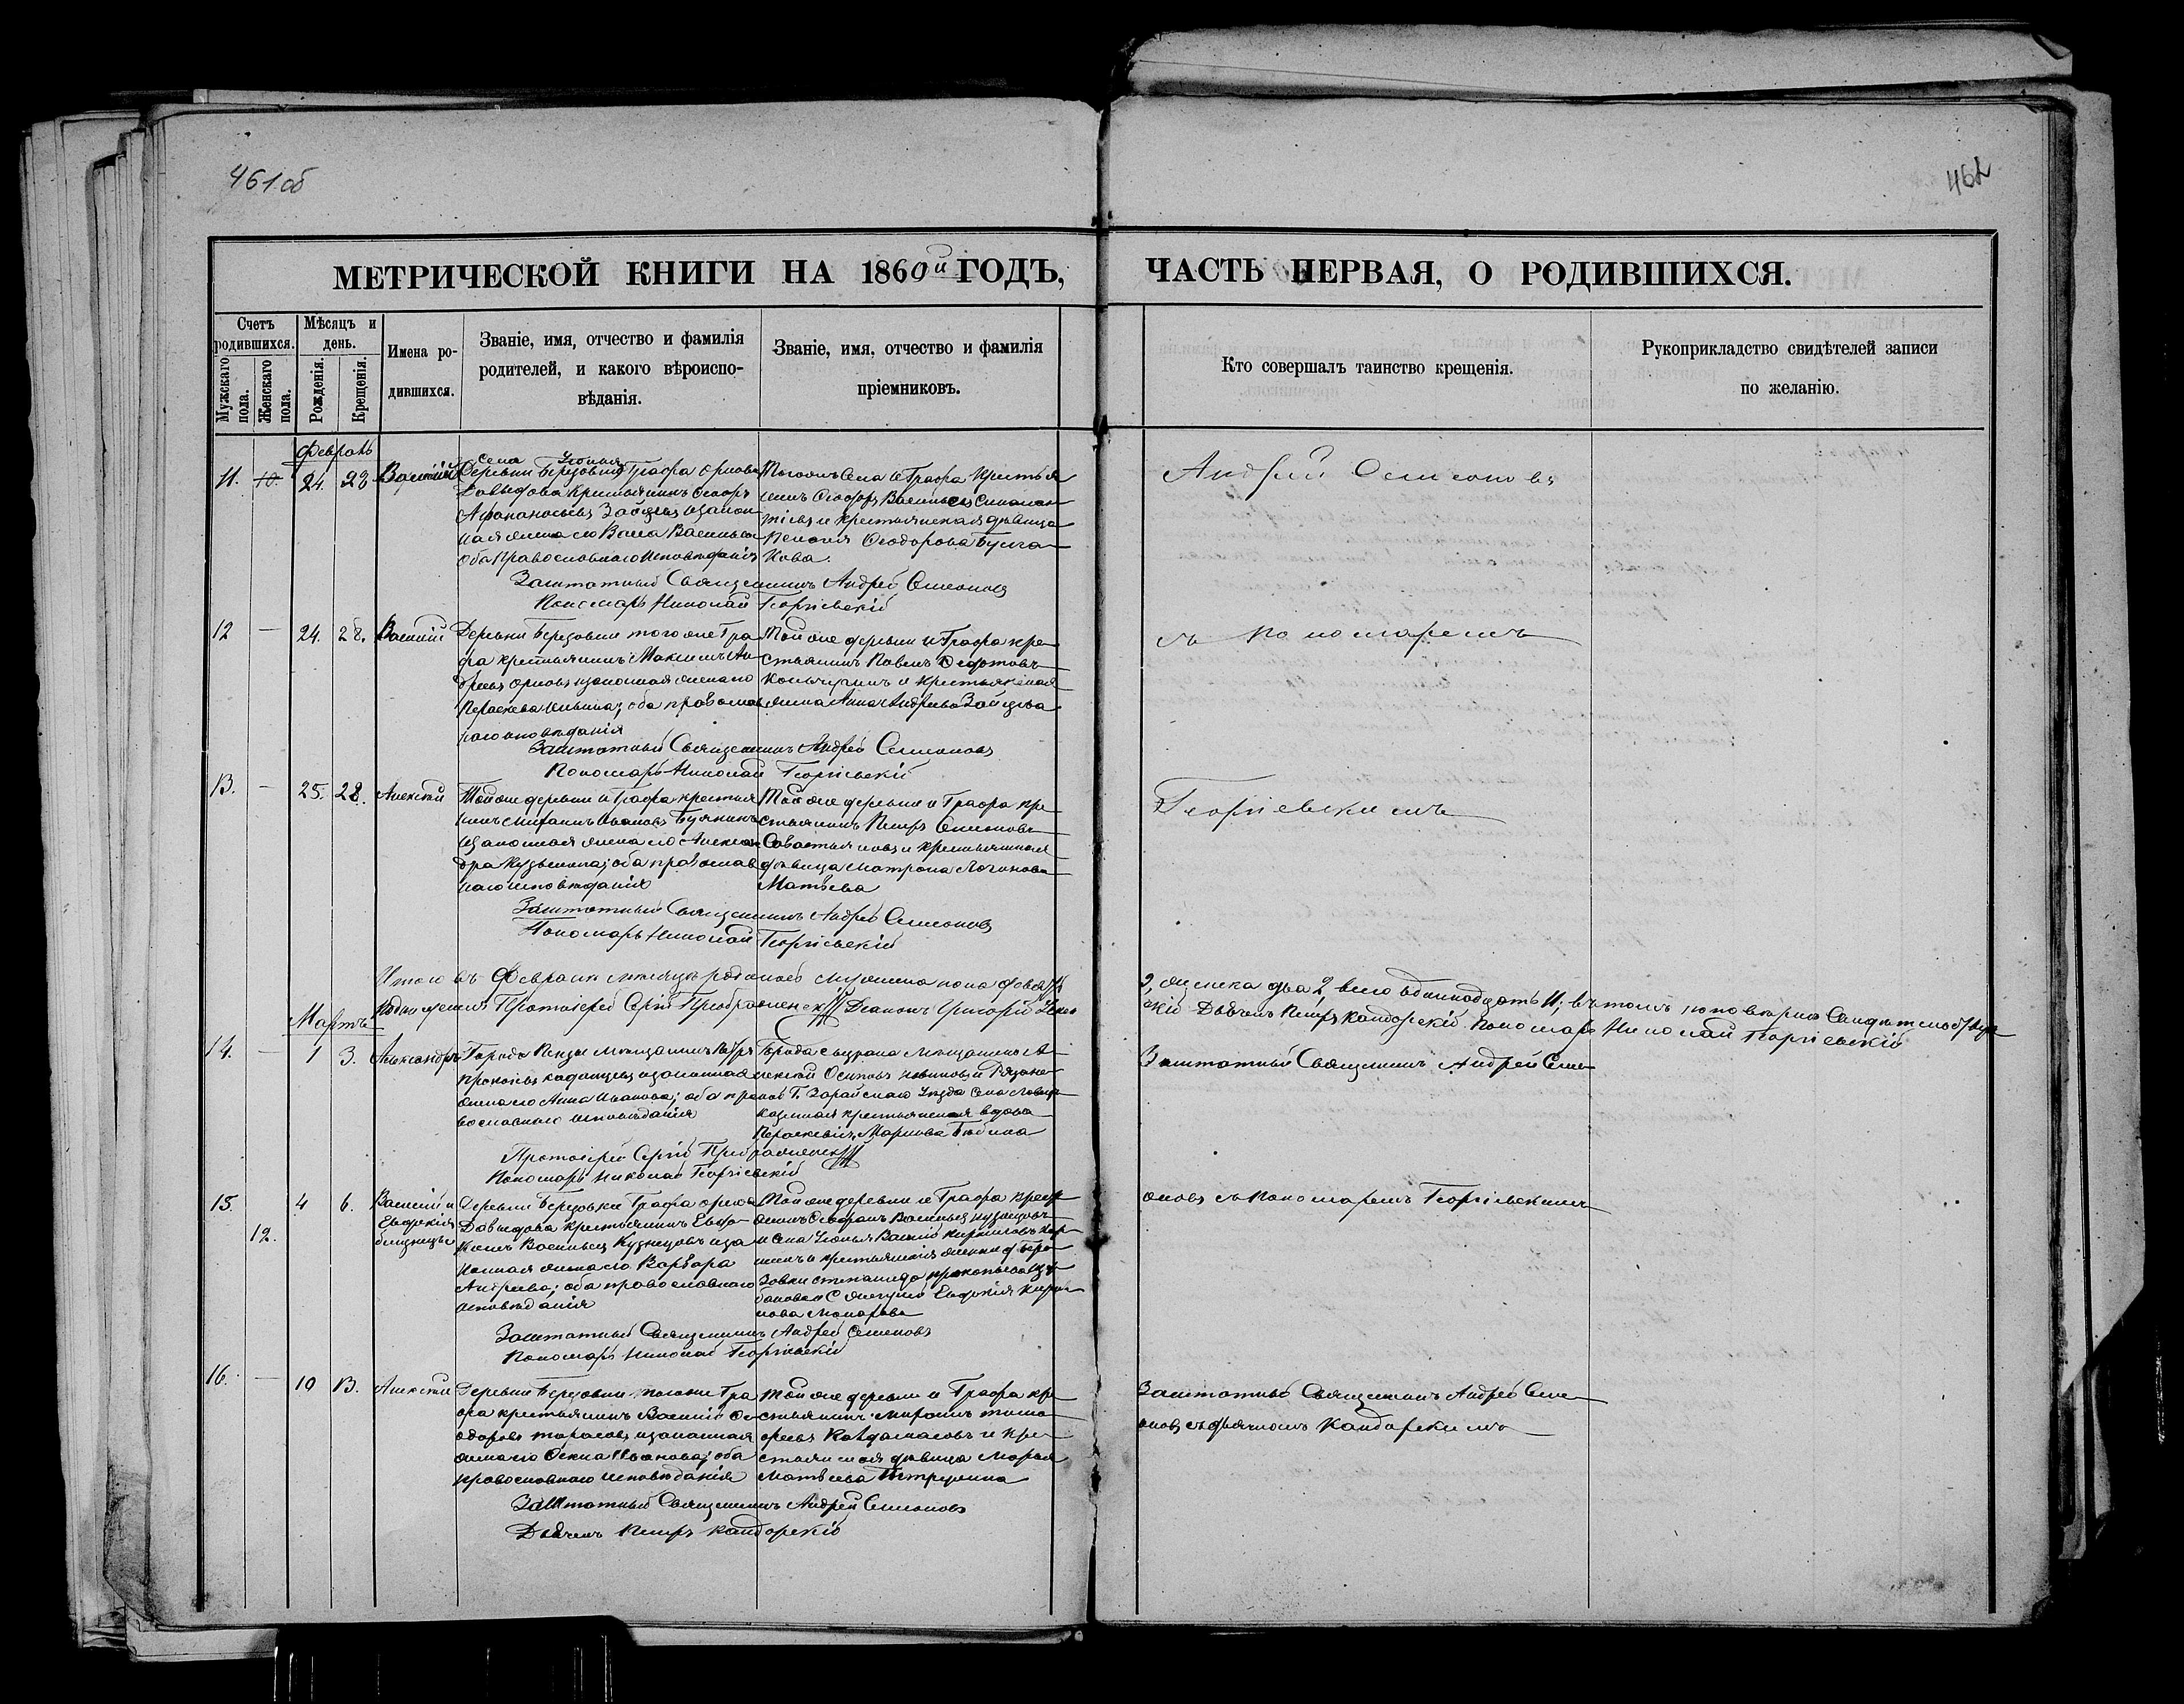 461 об
462
МЕТРИЧЕСКОЙ КНИГИ НА 1860й ГОДЪ,
ЧАСТЬ ПЕРВАЯ, О РОДИВШИХСЯ.
Счетъ родившихся.
Мужскаго пола.
Женскаго пола.
Мѣсяцъ и день.
Рожденія.
Крещенія.
Имена ро-
дившихся.
Званіе, имя, отчество и фамилія
родителей, и какого вѣроиспо-
вѣданія.
Званіе, имя, отчество и фамилія
пріемниковъ.
Кто совершалъ таинство крещенія.
Рукоприкладство свидѣтелей записи
по желанію.
Февраль
11. 10. 24. 28 Василій
Села Усонья
Деревни Березовки Графа Орлова
Давыдова крестьянинъ Ѳеодоръ
Афанасьевъ Зайцевъ и законная
жена его Васса Васильева
оба Православнаго исповѣданія
Тогоже Села и Графа крестья
нинъ Ѳеодоръ Васильевъ
и крестьянская дѣвица
Пелагія Ѳеодорова Булга
кова.
Андрей Симеоновъ
Заштатный Священникъ Андрей Симеоновъ
Пономарь Николай Георгіевскій
12 — 24. 28. Василій
Деревни Березовки того же Гра
фа крестьянинъ Максимъ Ан
дреевъ Орловъ и законная жена его
Параскева Ильина; оба православ
наго исповѣданія
Той же деревни и Графа кре
стьянинъ Павелъ
и крестьянская
жена Анна Андреева Зайцева
съ Пономаремъ
Заштатный Священникъ Андрей Симеоновъ
Пономарь Николай Георгіевскій
13. — 25. 28. Алексѣй
Той же деревни и Графа крестья
нинъ Михаилъ Ивановъ
и законная жена его Алексан
дра Кузьмина; оба православ
наго исповѣданія
Той же деревни и Графа кре
стьянинъ Петръ Симеоновъ
Савастьяновъ и крестьянская
дѣвица Матрона Логинова
Матвѣева
Георгіевскимъ
Заштатный Священникъ Андрей Симеоновъ
Пономарь Николай Георгіевскій
Итого въ Февралѣ мѣсяцѣ родилось мужеска пола девять
9, женска два 2, всего одиннадцать 11; въ томъ и по вѣрно
Протоіерей Сергій Преображенскій Діаконъ Григорій
Дьячекъ Петръ Кандорскій Пономарь Николай Георгіевскій
Мартъ
14. — 1 3. Александръ
Города Пензы мѣщанинъ Петръ
Прокопьевъ и законная
жена его Анна Иванова; оба пра
вославнаго исповѣданія
Города Сызрана мѣщанинъ А
лексѣй Осиповъ и Рязанс
кой Г. Зарайскаго Уѣзда Села
казенная крестьянская вдова
Параскевія Маркова
Заштатный Священникъ Андрей Симе
Протоіерей Сергій Преображенскій
Пономарь Николай Георгіевскій
15. 12. 4 6. Василій и
Евдокія
близнецы
Деревни Березовки Графа Орлова
Давыдова крестьянинъ Евдо
кимъ Васильевъ Кузнецовъ и за
конная жена его Варвара
Андреева; оба православнаго
исповѣданія
Той же деревни и Графа крест
Васильевъ Кузнецовъ
и Села Усонья Василій Кириловъ
и крестьянскія женки д. Бере
зовки Степанида Прокопьева
и С. Евдокія
Макарова
оновъ съ Пономаремъ Георгіевскимъ
Заштатный Священникъ Андрей Симеоновъ
Пономарь Николай Георгіевскій
16. — 10 13. Алексѣй
Деревни Березовки того же Гра
фа крестьянинъ Василій Ѳе
одоровъ Тарасовъ и законная
жена его Ѳекла Иванова; оба
православнаго исповѣданія
Той же деревни и Графа кре
стьянинъ Михаилъ Тимо
феевъ и кре
стьянская дѣвица Марья
Матвѣева
Заштатный Священникъ Андрей Симе
оновъ съ дьячкомъ Кандорскимъ
Заштатный Священникъ Андрей Симеоновъ
Дьячекъ Петръ Кандорскій